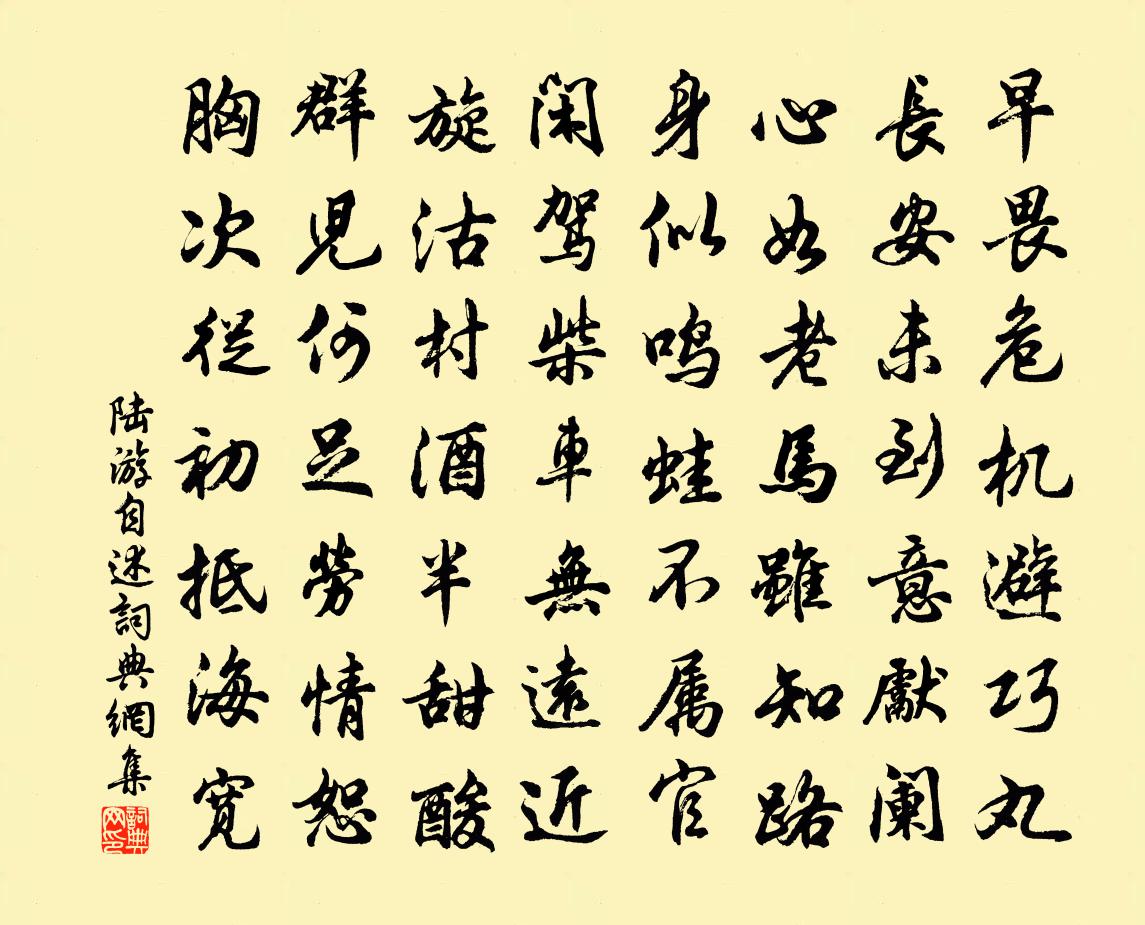 早畏危机避巧丸
長安未到意獻阑
心如老馬雖知路
身似鸣蛙不属官
闲驾柴車無遠近
旋沽村酒半甜酸
群児何足勞情恕
胸次從初抵海宽
陆游自述詞典網集
詞典网印